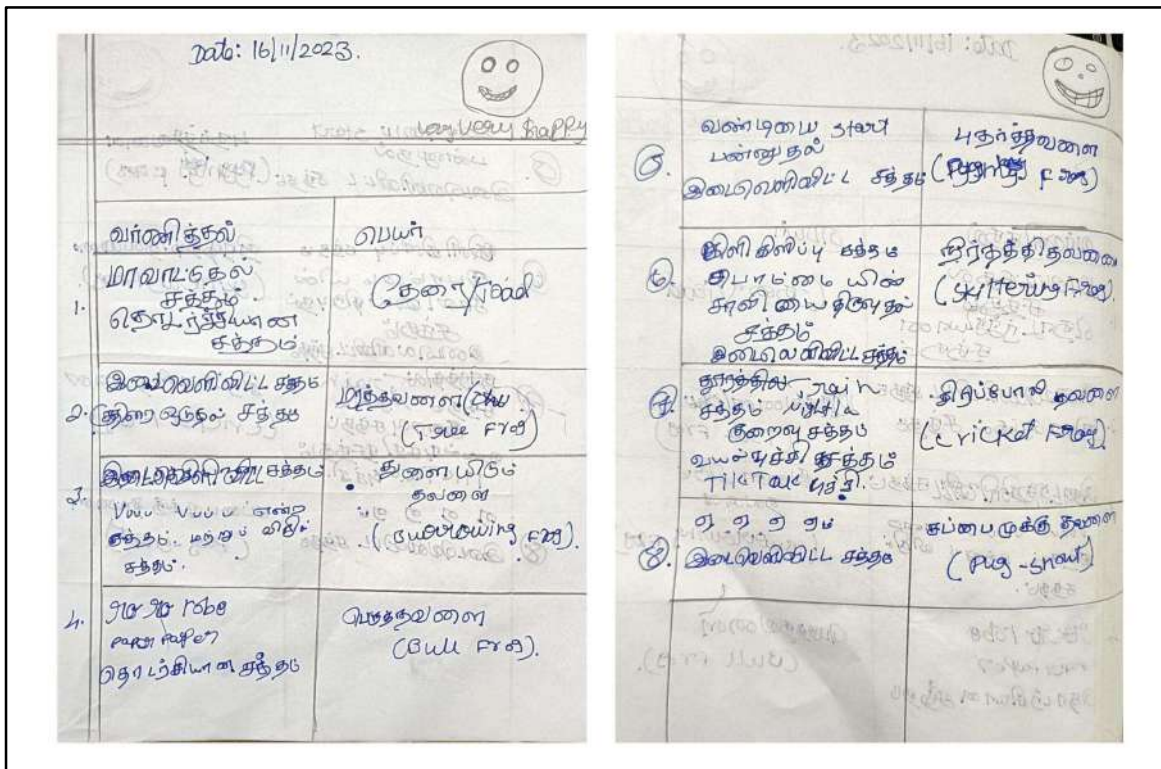 Date: 16/11/2023.
very very happy
வர்ணித்தல்
பெயர்
1.
மாவாட்டுதல்
சத்தம்.
தொடர்ச்சியான
சத்தம்
தேரை/Toad
2.
இடைவெளிவிட்ட சத்தம்
குதிரை ஓடுதல் சத்தம்
மரத்தவளை
(Tree Frog)
3.
இடைவெளிவிட்ட சத்தம்
என்ற
சத்தம். மற்றும்
சத்தம்.
துளையிடும்
தவளை
(Burrowing Frog).
4.
robe
தொடர்சியான சத்தம்
பெருதவளை
(Bull Frog).
5.
வண்டியை start
பன்னுதல்
இடைவெளிவிட்ட சத்தம்
புதர்த்தவளை
6.
கிளிகிளிப்பு சத்தம்
பொம்மையின்
சாவியை திருவுதல்
சத்தம்
இடைவெளிவிட்ட சத்தம்
7.
தூரத்தில் Train
சத்தம்
குறைவு சத்தம்
வயல்பூச்சி சத்தம்
Tic Tuc பூச்சி.
தவளை
(Cricket Frog)
8.
ஏ ஏ ஏ ஏம்
இடைவெளிவிட்ட சத்தம்
சப்பைமுக்கு தவளை
(Pug-snout)